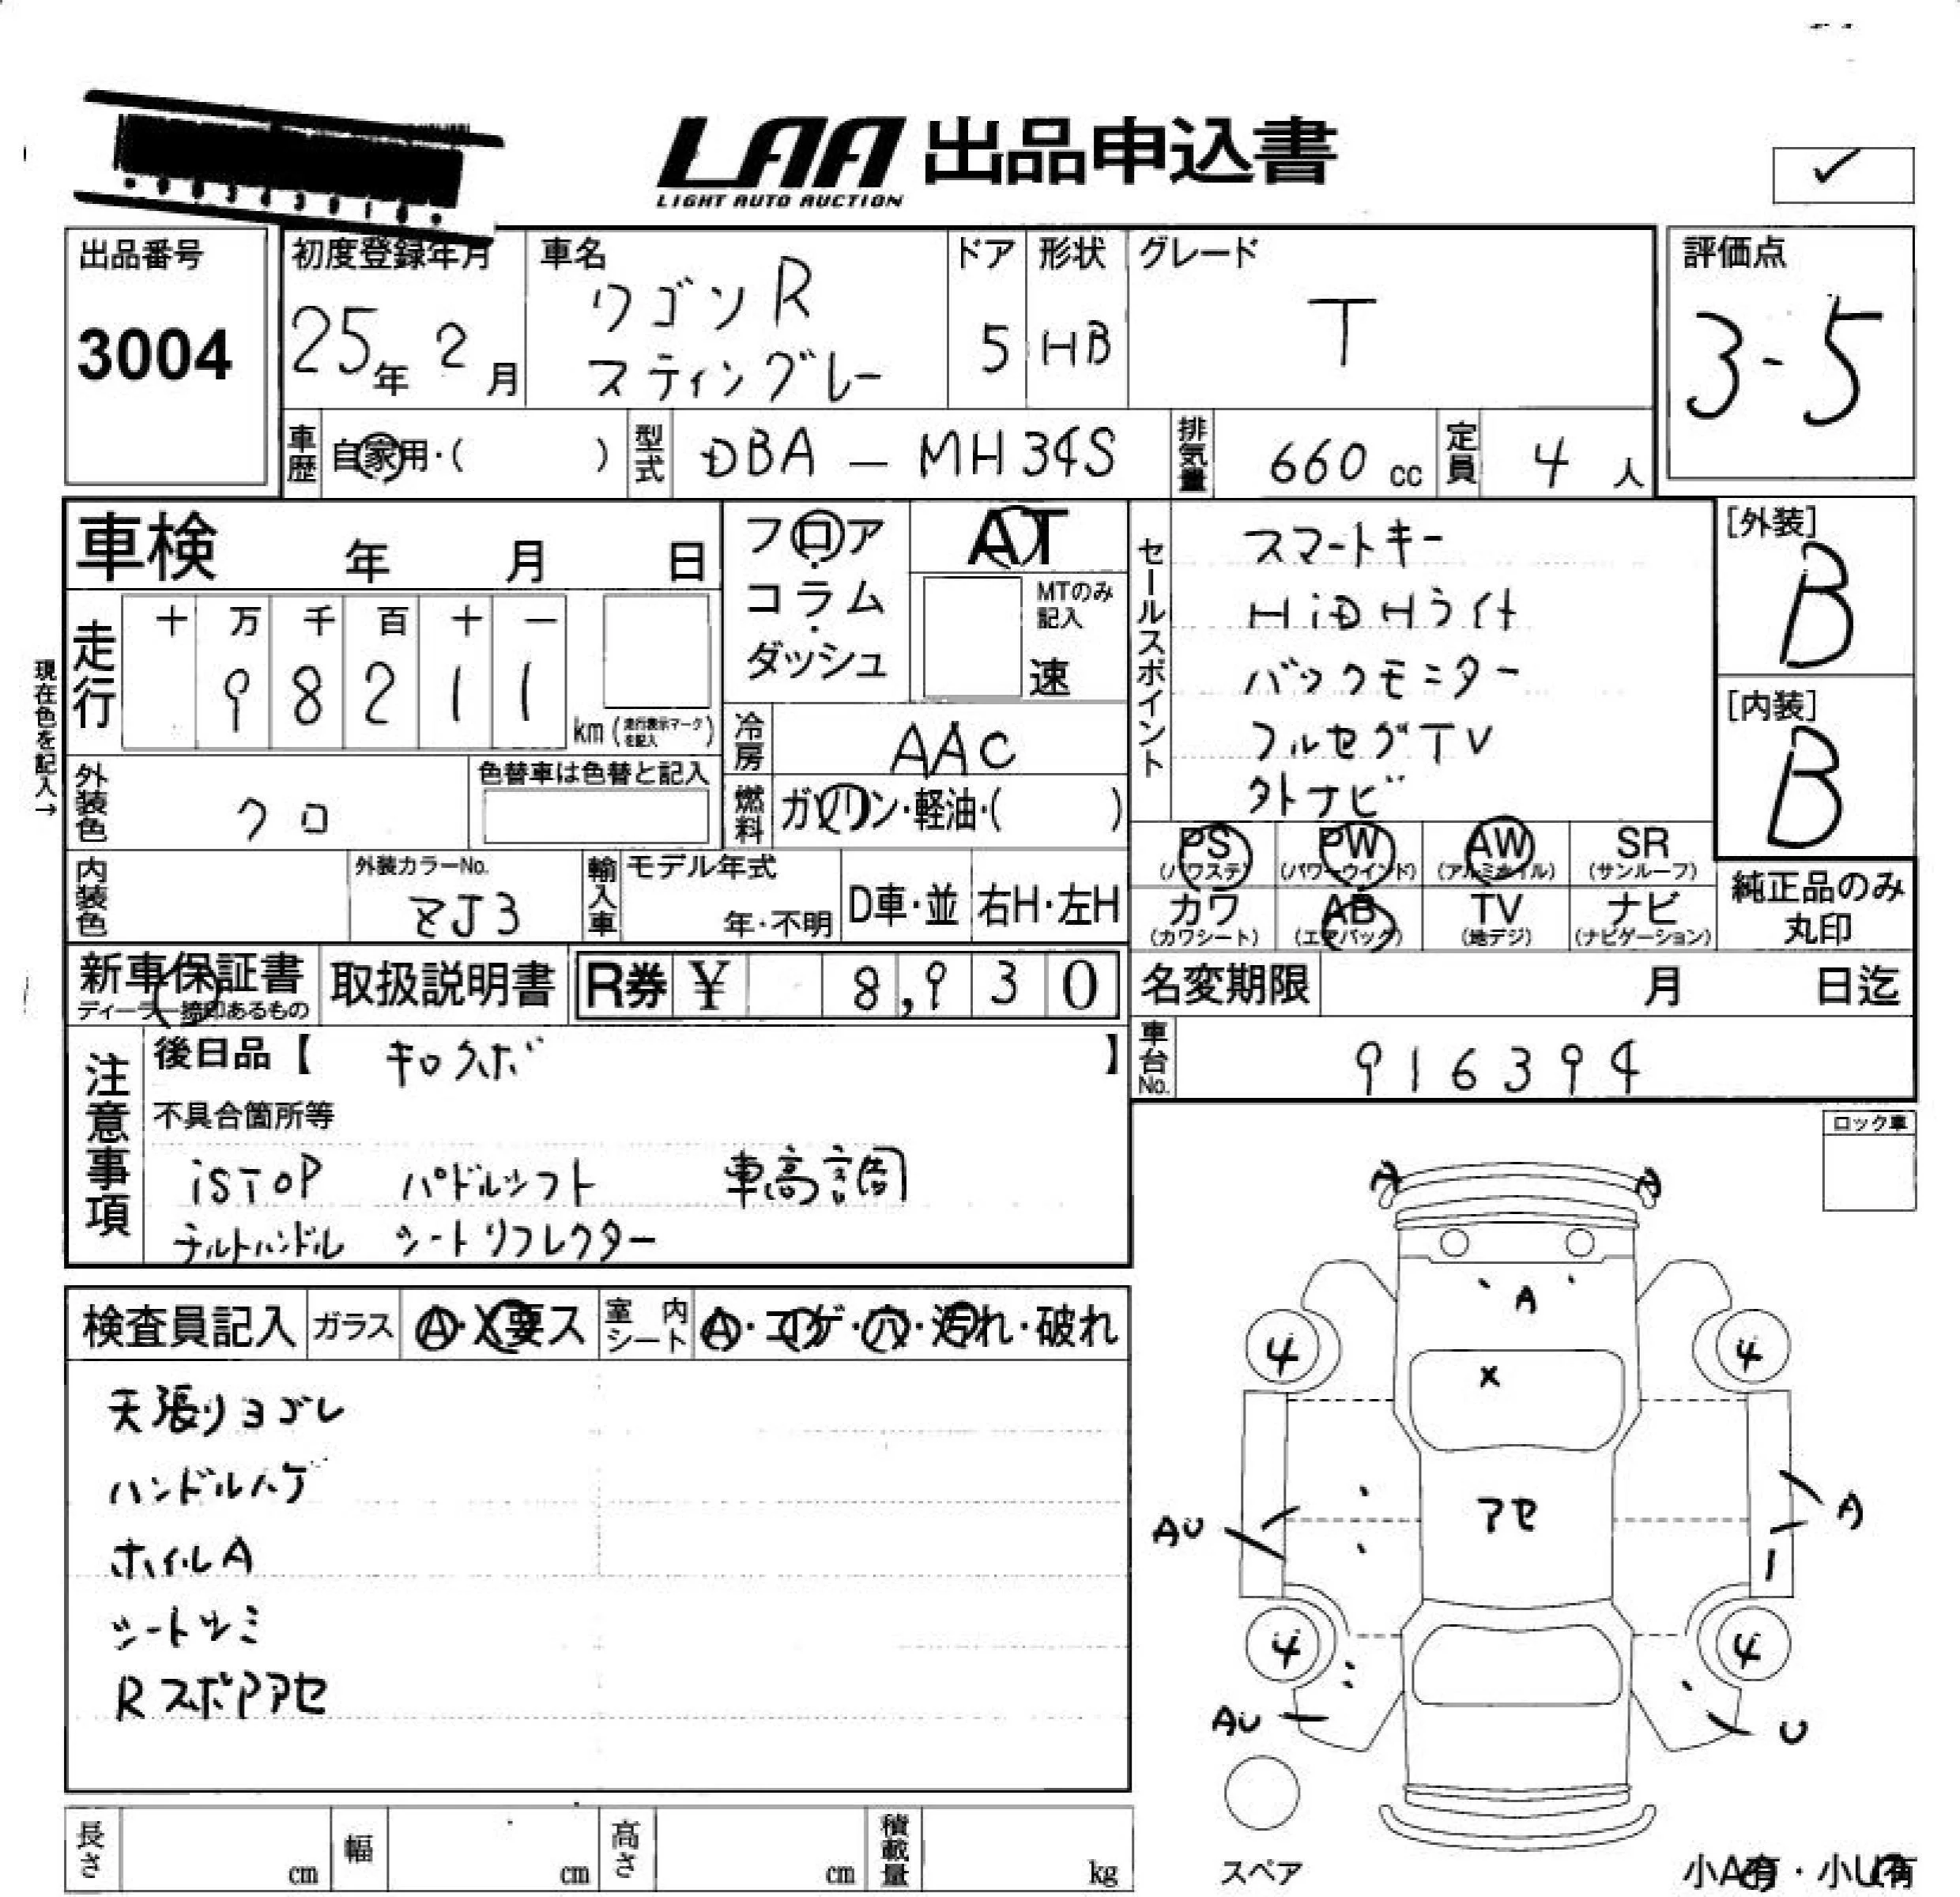 LAA 出品申込書
LIGHT AUTO AUCTION
出品番号
3004
初度登録年月
25年 2月
車名
ワゴンR
スティングレー
ドア
5
形状
HB
グレード
T
評価点
3-5
車歴
自家用・( )
型式
DBA - MH34S
排気量
660 cc
定員
4 人
車検 年 月 日
走行
十 万 千 百 十 一
9 8 2 1 1
km (走行表示マークを記入)
現在色を記入→
フロア
コラム
ダッシュ
AT
MTのみ記入
速
冷房
AAC
燃料
ガソリン・軽油・( )
セールスポイント
スマートキー
HiDHライト
バックモニター
フルセグTV
外ナビ
[外装]
B
[内装]
B
外装色
クロ
色替車は色替と記入
内装色
外装カラーNo.
ZJ3
輸入車
モデル年式
年・不明
D車・並
右H・左H
PS
(パワステ)
PW
(パワーウインド)
AW
(アルミホイル)
SR
(サンルーフ)
カワ
(カワシート)
AB
(エアバッグ)
TV
(地デジ)
ナビ
(ナビゲーション)
純正品のみ
丸印
新車保証書
ディーラー捺印あるもの
取扱説明書
R券 ¥ 8,930
名変期限 月 日迄
車台No.
916394
注意事項
後日品【 キロクボ 】
不具合箇所等
iSTOP パドルシフト 車高調
チルトハンドル シートリフレクター
ロック車
検査員記入
ガラス
A・X要ス
室内シート
A・コゲ・穴・汚れ・破れ
天張りヨゴレ
ハンドルハゲ
ホイルA
シートシミ
RスポPアセ
A A
A
4 4
X
アセ
AU A
4 4
AU U
スペア
小A有・小U有
長さ cm
幅 cm
高さ cm
積載量 kg